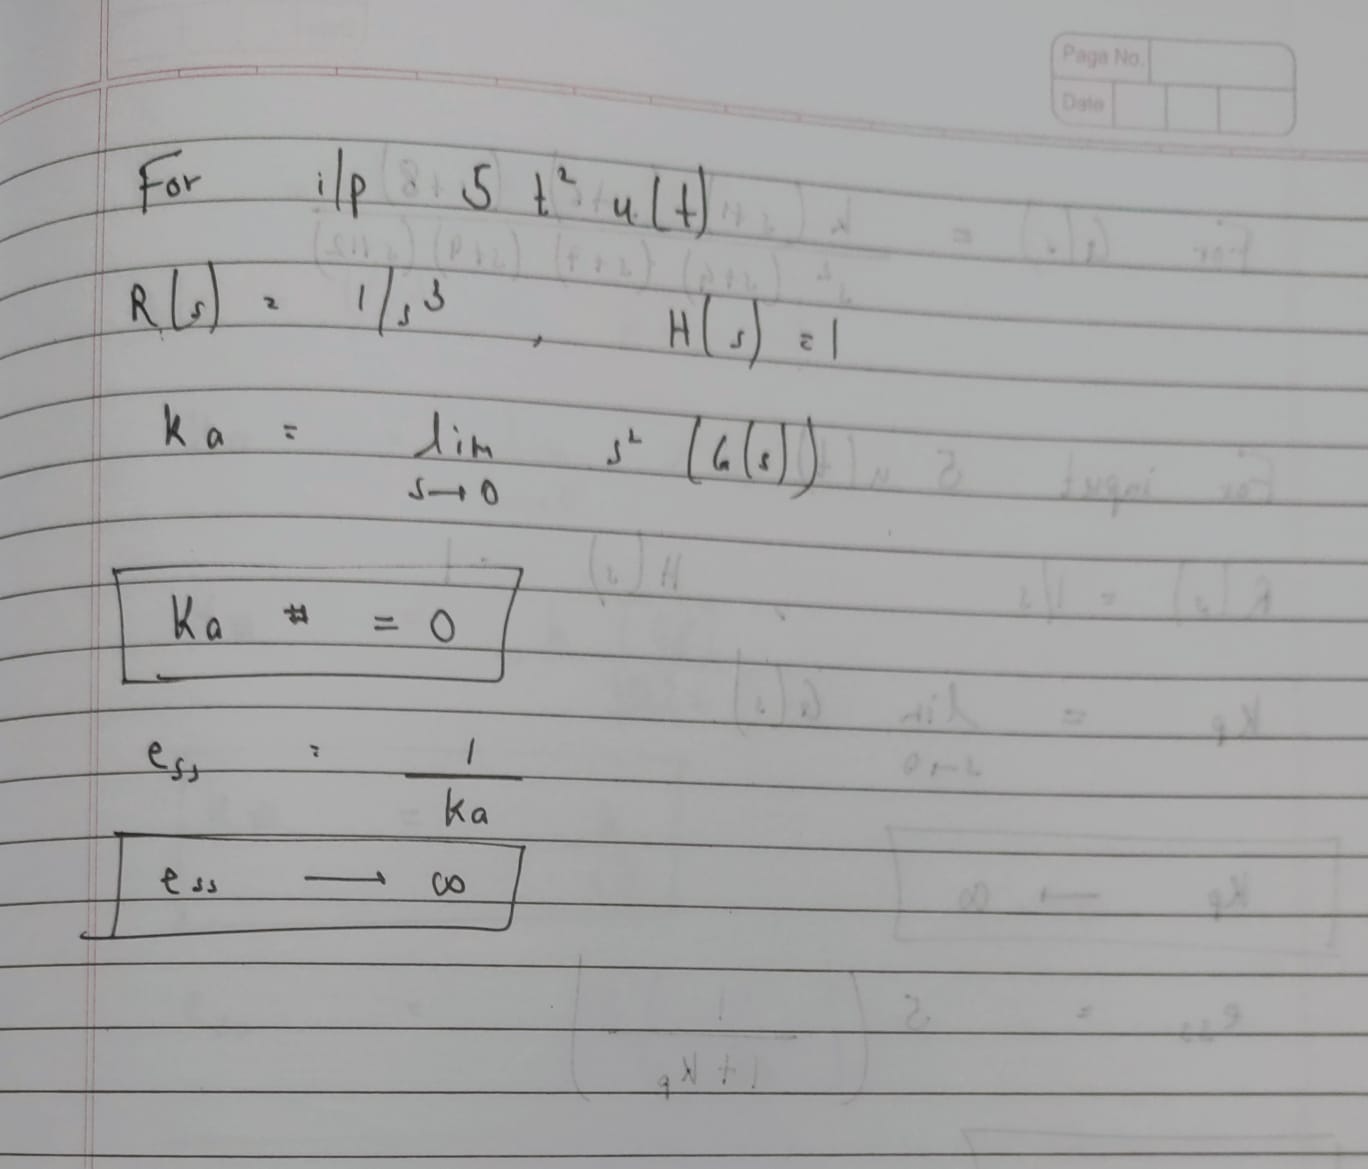 Page No.
Date
For i/p 5 t² u(t)
R(s) = 1/s³ , H(s) = 1
Ka = lim s² (G(s))
s→0
Ka = 0
ess = 1
Ka
ess → ∞